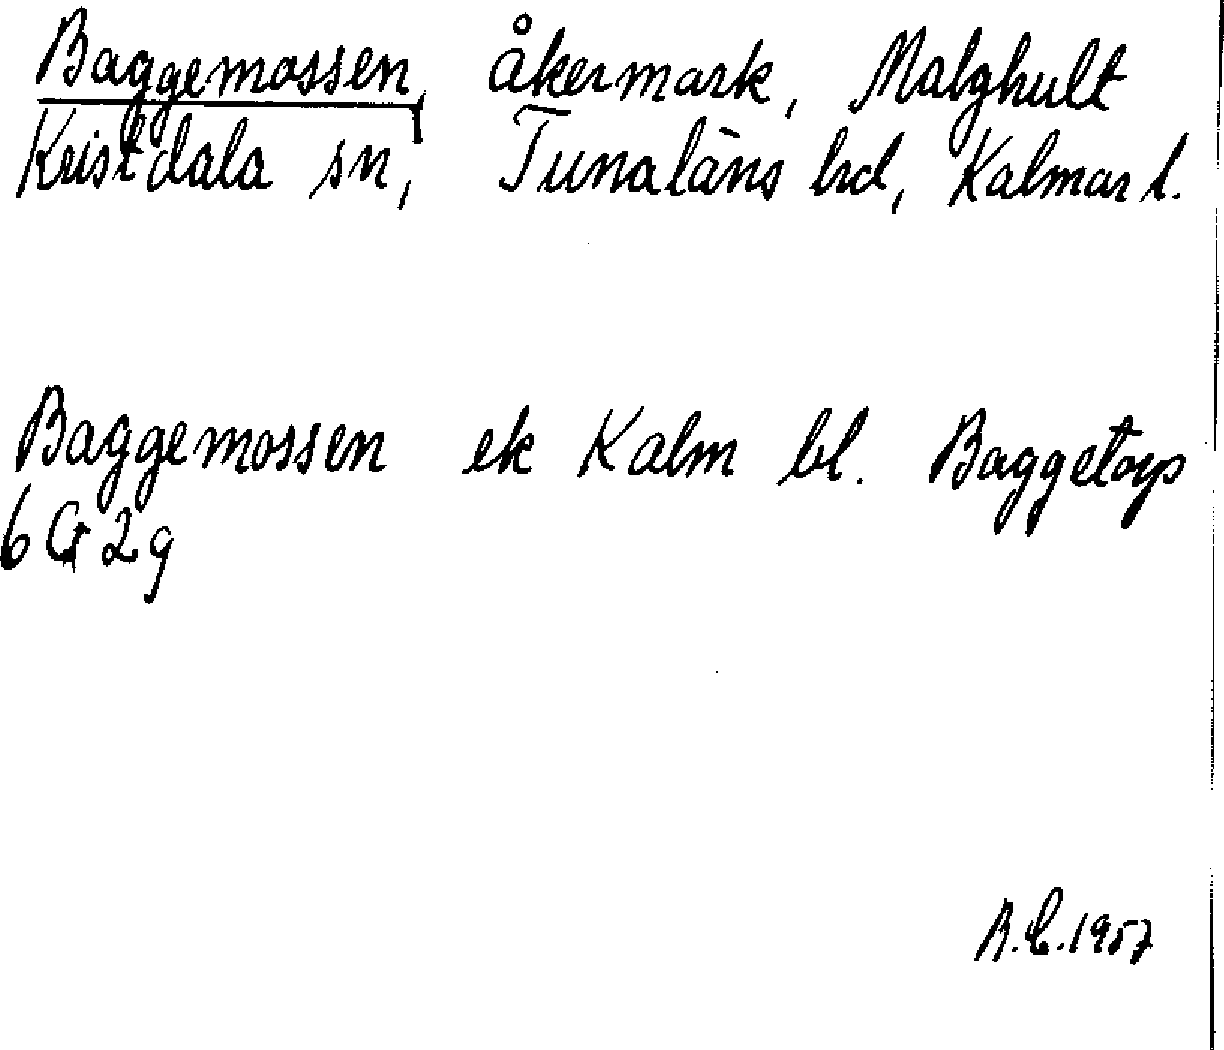 Baggemossen, åkermark, Malghult
Kristdala sn, Tunaläns hd, Kalmar l.
Baggemossen ek Kalm bl. Baggetorp
6 G 2 g
1957